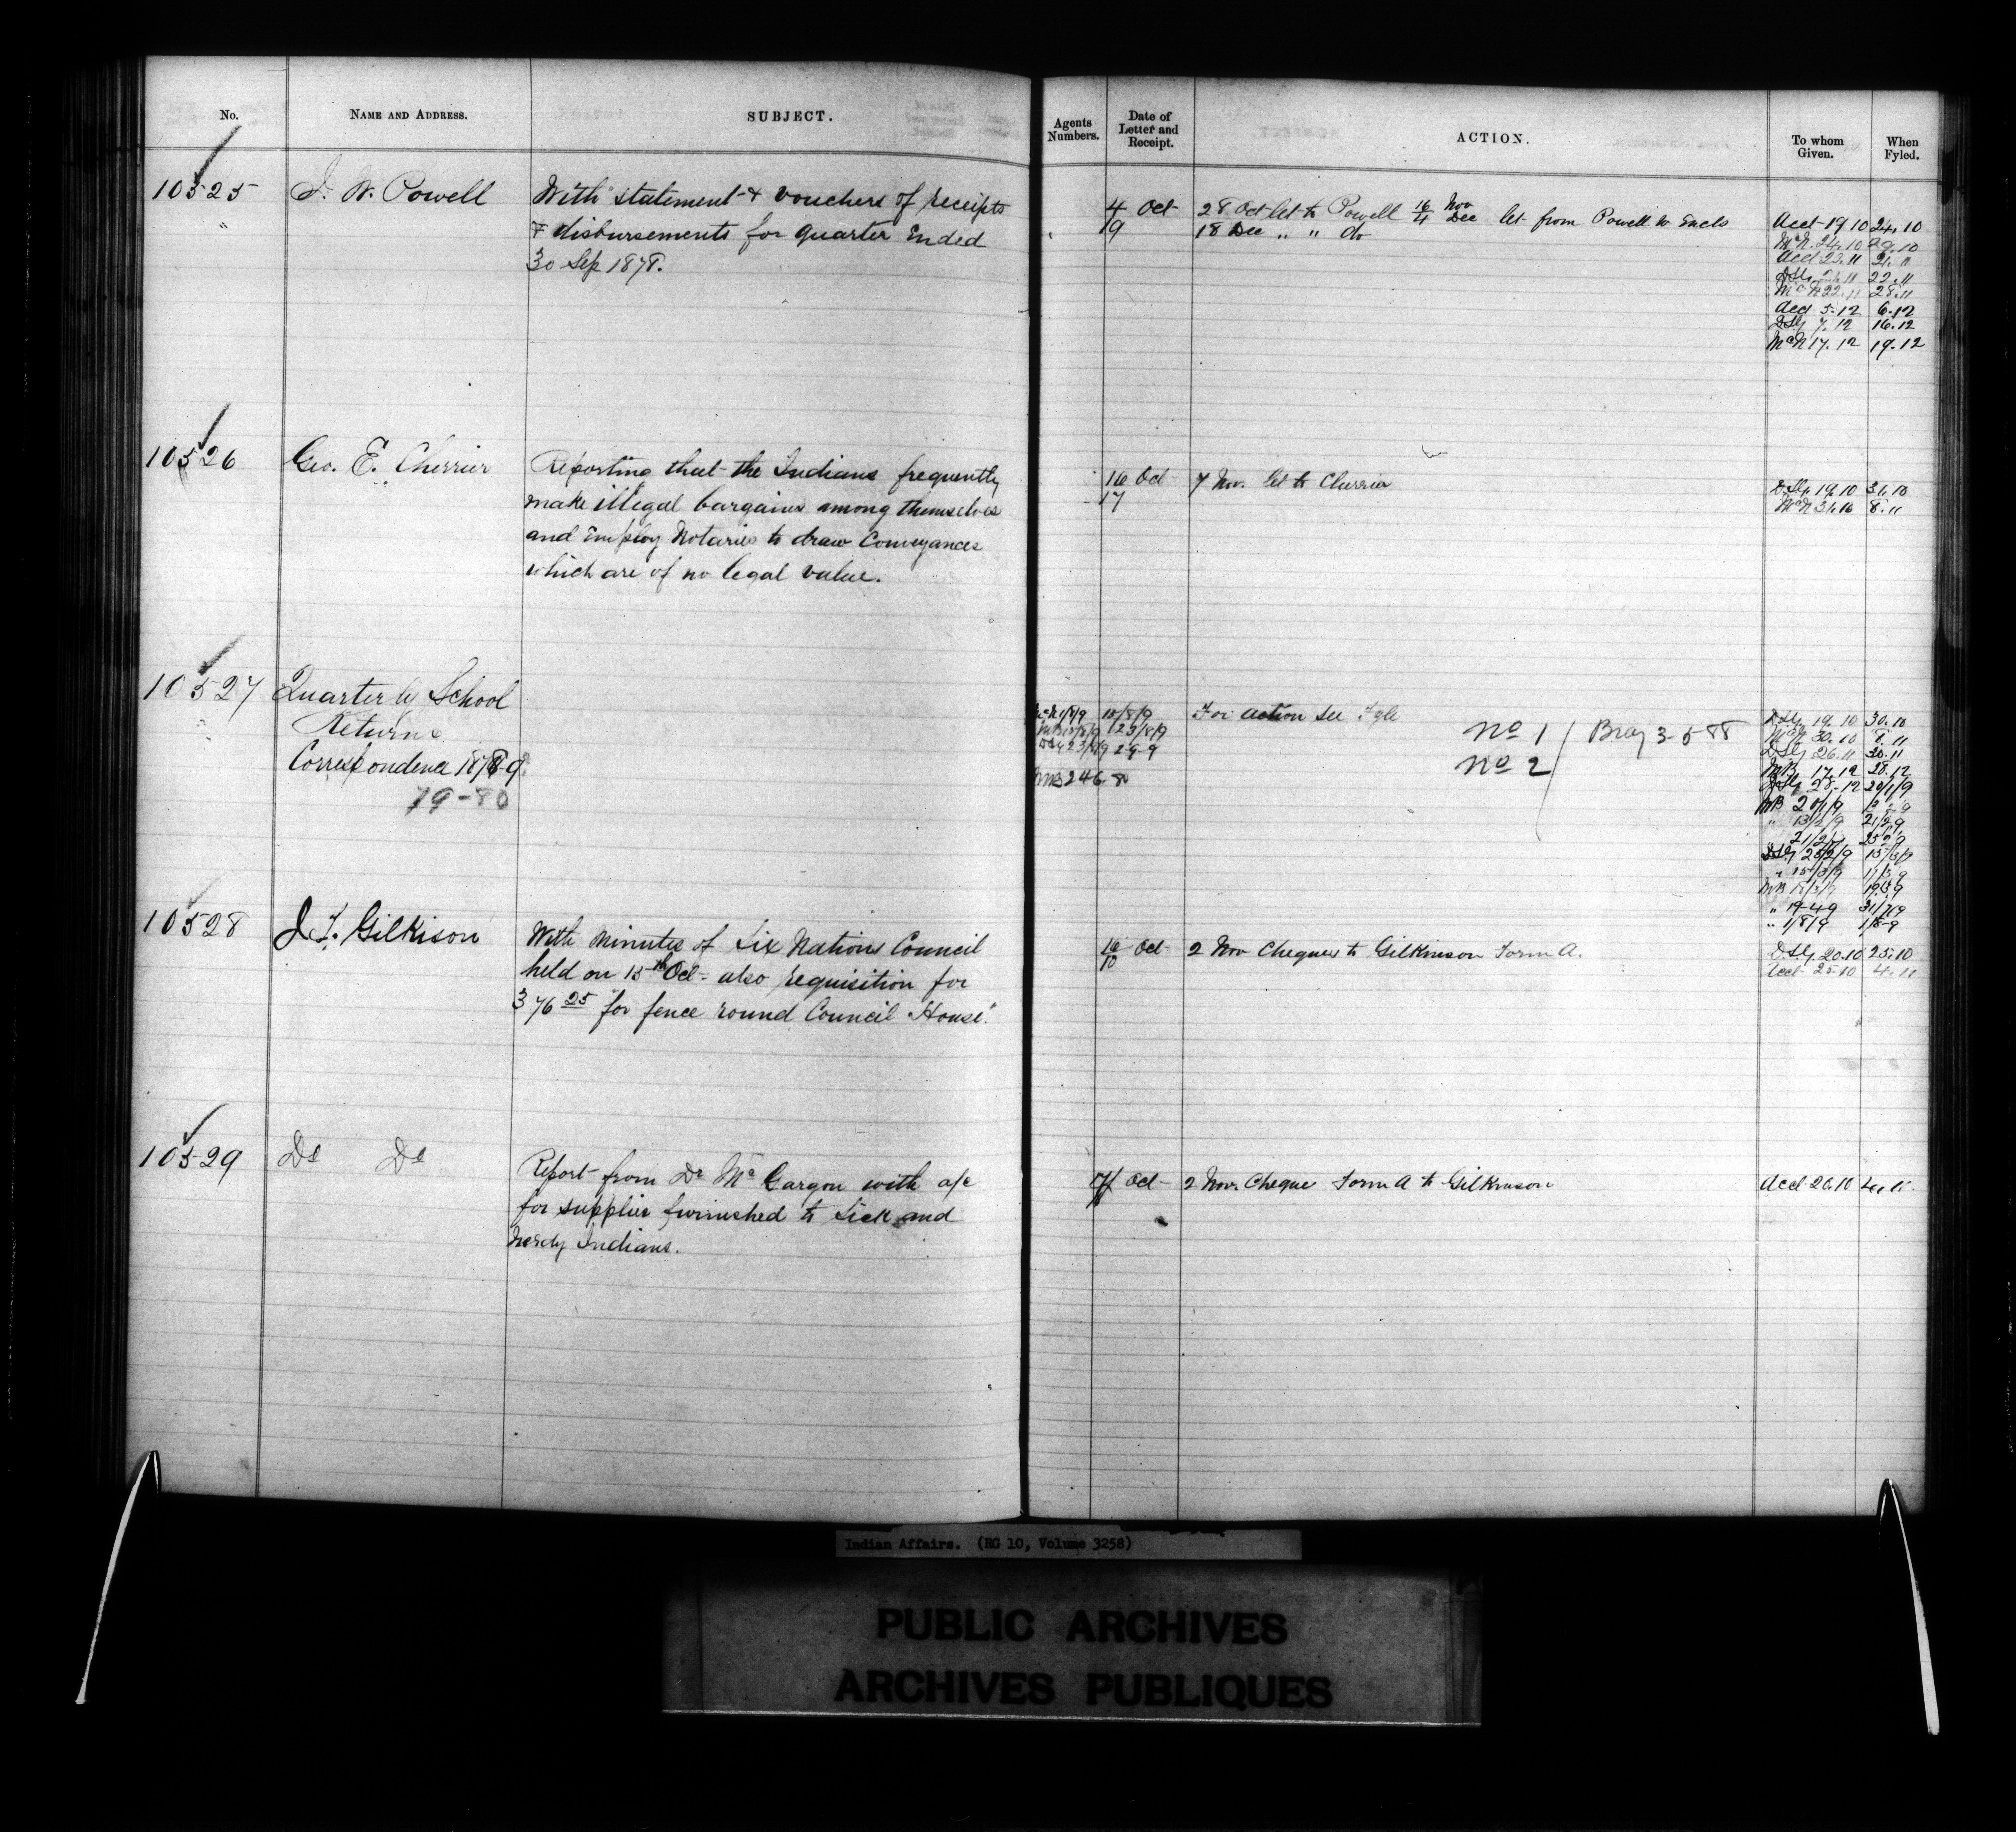 No.
NAME AND ADDRESS.
SUBJECT.
Agents Numbers.
Date of Letter and Receipt.
ACTION.
To whom Given.
When Fyled.
10525
I. W. Powell
With statement & vouchers of receipts
& disbursements for quarter ended
30 Sep 1878.
4 Oct
19
28 Oct let to Powell 16/4 Nov/Dec let from Powell w Encls
18 Dec " " do
Acct 19.10 24.10
McN. 24.10 29.10
22.11
McN 22.11 28.11
Acct 5.12 6.12
7.12 16.12
McN 17.12 19.12
10526
Geo. E. Cherrier
Reporting that the Indians frequently
make illegal bargains among themselves
and employ Notaries to draw Conveyances
which are of no legal value.
16 Oct
17
7 Nov. let to Cherrier
19.10 31.10
McN 31.10 8.11
10527
Quarterly School
Returns
Correspondence 1878-9.
79-80
15/8/9
23/8/9
2-9-9
MB 24 6. 80
For action see Fyle
No 1
No 2
Bray 3-5-88
19.10 30.10
McN 30.10 8.11
26.11 30.11
MB 17.12 28.12
28.12 20/1/9
MB 20/1/9
" 13/2/9 21/2/9
25/2/9 15/3/9
" 19-4-9 31/7/9
" 1/8/9 1/8-9
10528
J. T. Gilkison
With Minutes of Six Nations Council
held on 15th Oct - also requisition for
376 25 for fence round Council House.
16 Oct
2 Nov Cheques to Gilkinson Form A.
20.10 25.10
Acct 25.10 4.11
10529
Do Do
Report from Dr Mc Gargon with a/c
for supplies furnished to Sick and
needy Indians.
Oct
2 Nov. Cheque Form A to Gilkinson
Acct 20.10
Indian Affairs. (RG 10, Volume 3258)
PUBLIC ARCHIVES
ARCHIVES PUBLIQUES